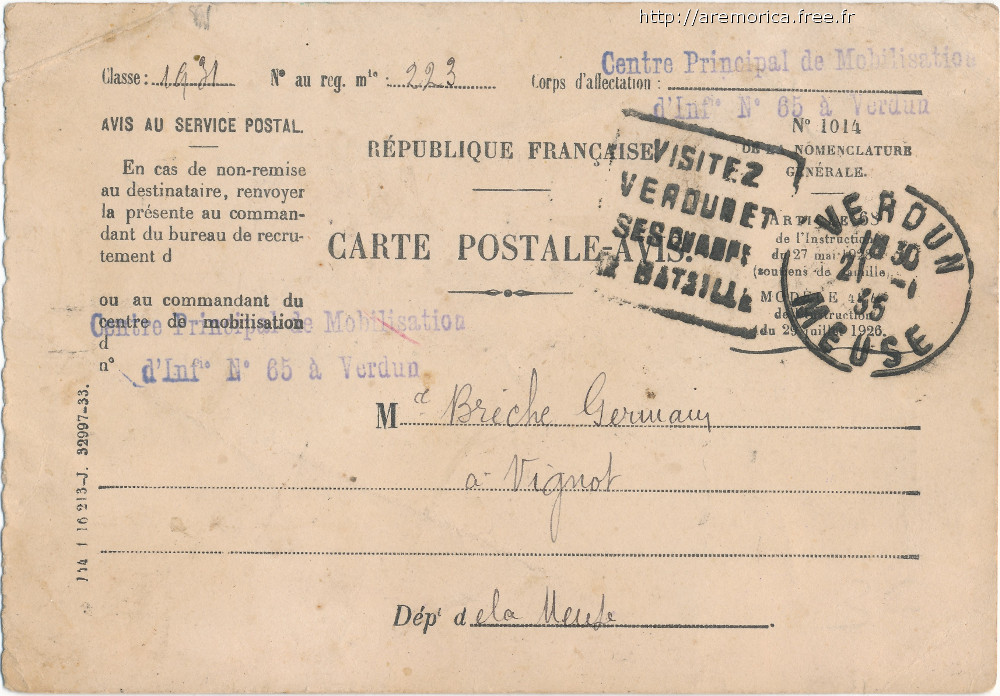 http://aremorica.free.fr
Centre Principal de Mobilisation
d'Infie N° 65 à Verdun
Classe : 1931 N° au reg. mle : 223 Corps d'affectation :
AVIS AU SERVICE POSTAL.
En cas de non-remise
au destinataire, renvoyer
la présente au comman-
dant du bureau de recru-
tement d
ou au commandant du
centre de mobilisation
d
n°
Centre Principal de Mobilisation
d'Infie N° 65 à Verdun
RÉPUBLIQUE FRANÇAISE
CARTE POSTALE-AVIS.
VISITEZ
VERDUN ET
SES CHAMPS
DE BATAILLE
N° 1014
DE LA NOMENCLATURE
GÉNÉRALE.
ARTICLE 68
de l'Instruction
du 27 mai 1928
(soutiens de famille
MODÈLE
de l'Instruction
du 29 juillet 1926.
VERDUN
30
35
MEUSE
M Brêche Germain
à Vignot
Dépt de la Meuse
144 1 16 213-J. 32997-33.